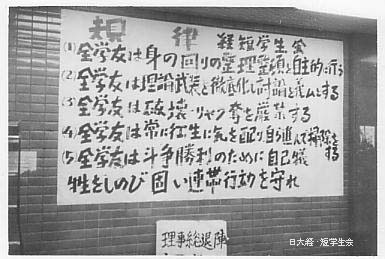 規 律 経短学生会
(1) 全学友は身の回りの整理整頓を自主的に行う
(2) 全学友は理論武装と徹底化し討論を義ムとする
(3) 全学友は破壊・リャク奪を厳禁する
(4) 全学友は常に衛生に気を配り自ら進んで掃除をする
(5) 全学友は斗争勝利のために自己犠
牲をしのび固い連帯行動を守れ
理事総退陣
日大経・短学生会